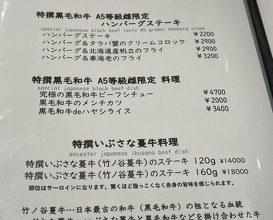 特撰黒毛和牛 A5等級雌限定
ハンバーグステーキ
special japanese black beef (only A5 grade) Hamburg steak
ハンバーグステーキ ¥2200
ハンバーグ＆タラバ蟹のクリームコロッケ ¥2900
ハンバーグ＆北海道産帆立のフライ ¥2900
ハンバーグ＆車海老のフライ ¥3200
特撰黒毛和牛 A5等級雌限定 料理
special japanese black beef dish
究極の黒毛和牛ビーフシチュー ¥4700
黒毛和牛のメンチカツ ¥2000
黒毛和牛deハヤシライス ¥3400
特撰いぶさな蔓牛料理
ancestor japanese ibusana beef dish
特撰いぶさな蔓牛(竹ノ谷蔓牛)のステーキ 120g ¥14000
特撰いぶさな蔓牛(竹ノ谷蔓牛)のステーキ 160g ¥18000
部位はサーロインになります。驚くほど脂っこくなく赤身の旨味を感じられます。
竹ノ谷蔓牛…日本最古の和牛(黒毛和牛)の祖となる血統